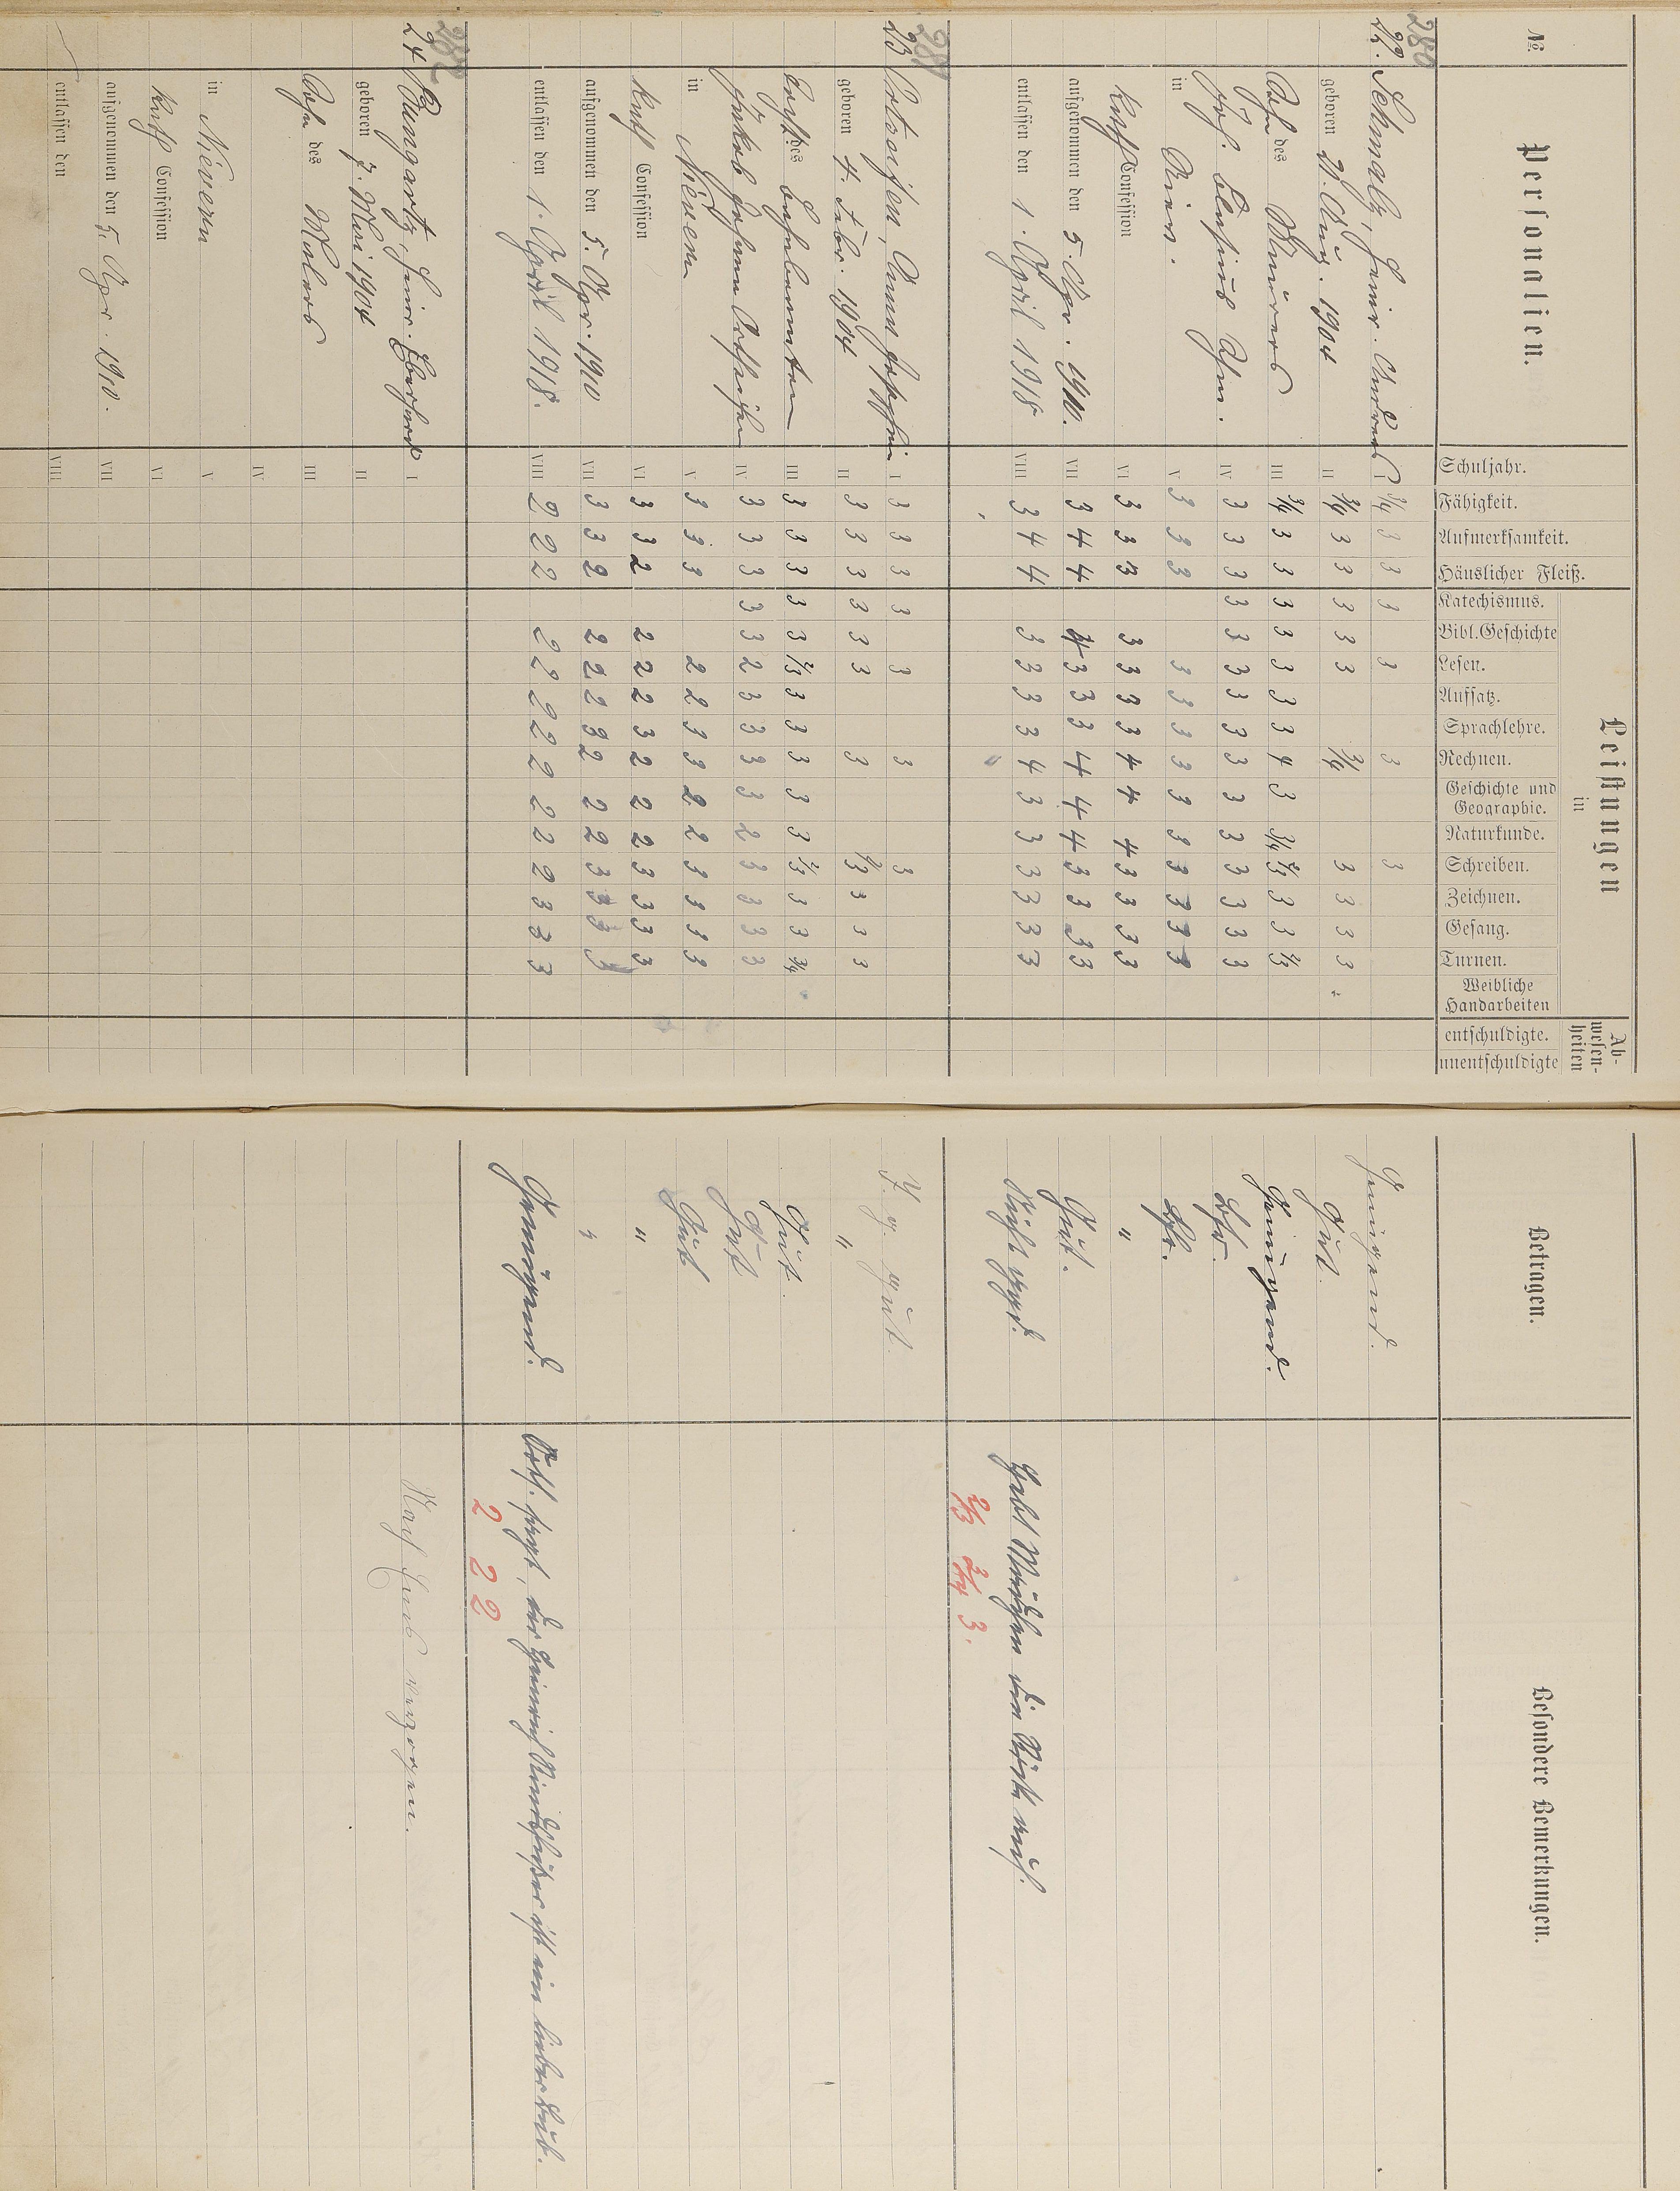 №
Personalien.
Schuljahr.
Fähigkeit.
Aufmerksamkeit.
Häuslicher Fleiß.
Leistungen
in
Katechismus.
Bibl. Geschichte
Lesen.
Aufsatz.
Sprachlehre.
Rechnen.
Geschichte und
Geographie.
Naturkunde.
Schreiben.
Zeichnen.
Gesang.
Turnen.
Weibliche
Handarbeiten
Ab-
wesen-
heiten
entschuldigte.
unentschuldigte
Betragen.
Besondere Bemerkungen.
280
22. Schmalz, Heinr. Andreas I 3/4 3 3 3 3 3 3 Genügend.
geboren 21. Aug. 1904 II 3/4 3 3 3 3 3 3/4 3 3 3 3 Gut.
Sohn des Maurers III 3/4 3 3 3 3 3 3 3 4 3 3/4 2/3 3 3 2/3 Genügend.
Joh. IV 3 3 3 3 3 3 3 3 3 3 3 3 3 3 3
in V 3 3 3 3 3 3 3 3 3 3 3 3 3
kath Confession VI 3 3 3 3 3 3 3 4 4 4 3 3 3 3 "
aufgenommen den 5. Apr. 1910. VII 3 4 4 4 3 3 3 4 4 4 3 3 3 3 Gut.
entlassen den 1. April 1918 VIII 3 4 4 3 3 3 3 4 3 3 3 3 3 3 Nicht
2/3 3/4 3.
281
23 Ortseifen, I 3 3 3 3 3 3 3 gut.
geboren 4. Febr. 1904 II 3 3 3 3 3 3 3 2/3 3 3 3 "
des Bahnbeamten III 3 3 3 3 3 2/3 3 3 3 3 3 2/3 3 3 3/4 Gut.
Jakob Johann Ortseifen IV 3 3 3 3 3 2 3 3 3 3 2 3 3 3 3 Gut
in Nievern V 3 3 3 2 2 3 3 2 2 3 3 3 3 Gut
kath Confession VI 3 3 2 2 2 2 3 2 2 2 3 3 3 3 "
aufgenommen den 5. Apr. 1910 VII 3 3 2 2 2 2 3 2 2 2 3 3 3 3 "
entlassen den 1. April 1918. VIII 2 2 2 2 2 2 2 2 2 2 2 3 3 3 Genügend.
2 2 2
282
24 Bungartz, Heinr. Eberhard I Nach Ems verzogen.
geboren 7. Mai 1904 II
Sohn des Malers III
IV
in Nievern V
kath Confession VI
aufgenommen den 5. Apr. 1910. VII
entlassen den VIII